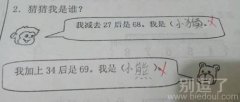 2. 猜猜我是谁？
我减去27后是68。我是(小猫)。
我加上34后是69。我是(小熊)
别逗了
www.biedoul.com